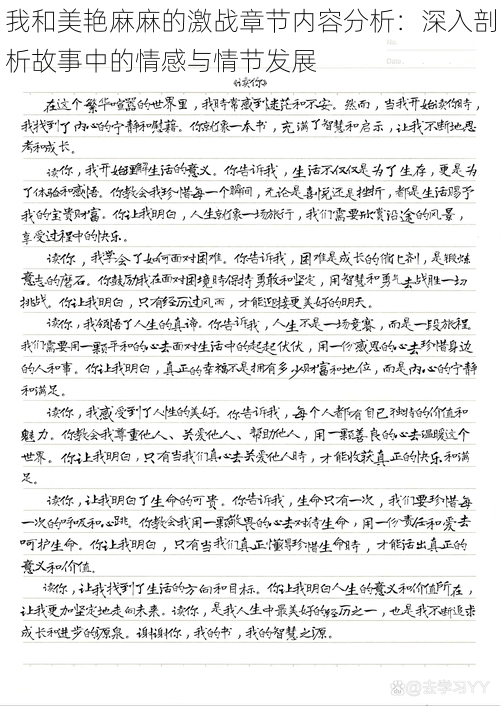 我和美艳麻麻的激战章节内容分析：深入剖
析故事中的情感与情节发展
No.
Date.
《读你》
在这个繁华喧嚣的世界里，我时常感到迷茫和不安。然而，当我开始读你时，
我找到了内心的宁静和慰藉。你就像一本书，充满了智慧和启示，让我不断地思
考和成长。
读你，我开始理解生活的意义。你告诉我，生活不仅仅是为了生存，更是为
了体验和感悟。你教会我珍惜每一个瞬间，无论是喜悦还是挫折，都是生活赐予
我的宝贵财富。你让我明白，人生就像一场旅行，我们需要欣赏沿途的风景，
享受过程中的快乐。
读你，我学会了如何面对困难。你告诉我，困难是成长的催化剂，是锻炼
意志的磨石。你鼓励我在面对困境时保持勇敢和坚定，用智慧和勇气去战胜一切
挑战。你让我明白，只有经历过风雨，才能迎接更美好的明天。
读你，我领悟了人生的真谛。你告诉我，人生不是一场竞赛，而是一段旅程。
我们需要用一颗平和的心去面对生活中的起起伏伏，用一份感恩的心去珍惜身边
的人和事。你让我明白，真正的幸福不是拥有多少财富和地位，而是内心的宁静
和满足。
读你，我感受到了人性的美好。你告诉我，每个人都有自己独特的价值和
魅力。你教会我尊重他人、关爱他人、帮助他人，用一颗善良的心去温暖这个
世界。你让我明白，只有当我们真心去关爱他人时，才能收获真正的快乐和满
足。
读你，让我明白了生命的可贵。你告诉我，生命只有一次，我们要珍惜每
一次的呼吸和心跳。你教会我用一颗敬畏的心去对待生命，用一份责任和爱去
呵护生命。你让我明白，只有当我们真正懂得珍惜生命时，才能活出真正的
意义和价值。
读你，让我找到了生活的方向和目标。你让我明白人生的意义和价值所在，
让我更加坚定地走向未来。读你，是我人生中最美好的经历之一，也是我不断追求
成长和进步的源泉。谢谢你，我的书，我的智慧之源。
@去学习YY